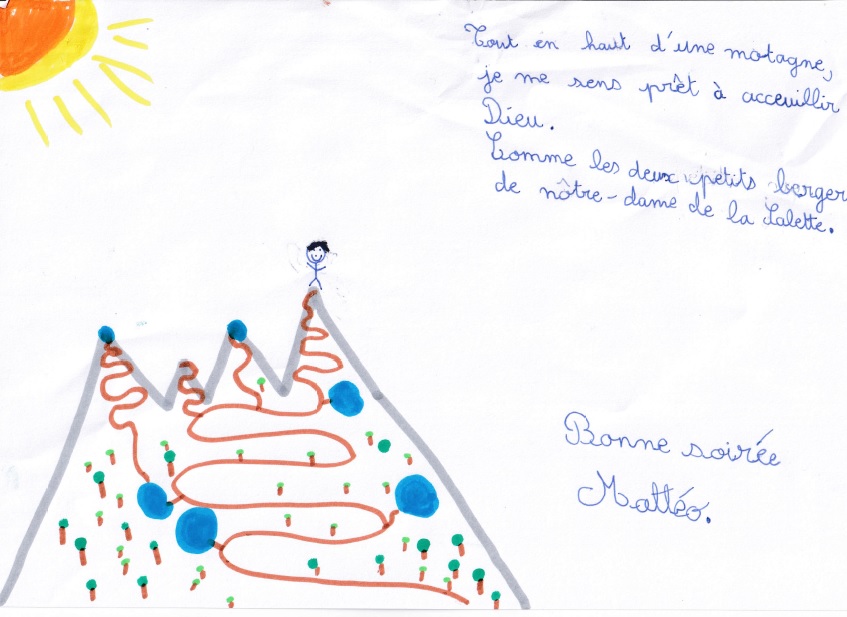 Tout en haut d'une motagne,
je me sens prêt à acceuillir
Dieu.
Comme les deux petits berger
de nôtre-dame de la Salette.
Bonne soirée
Mattéo.